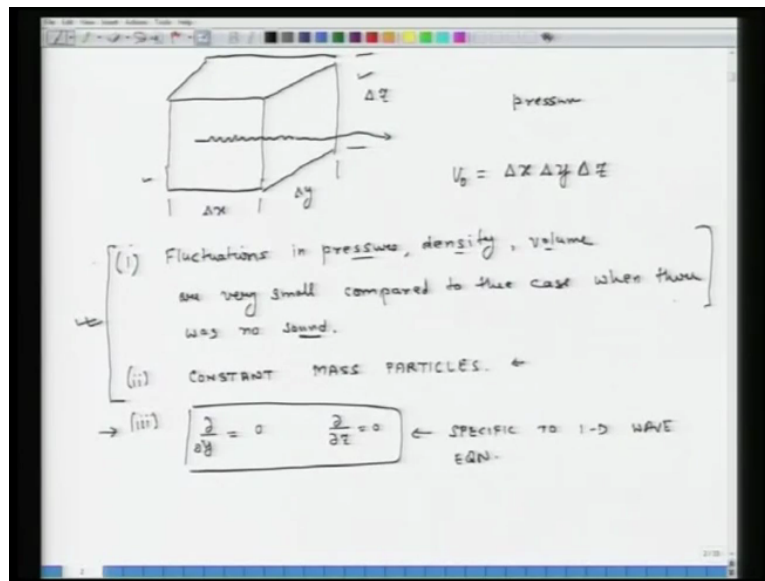 Δz
pressure
V₀ = Δx Δy Δz
Δx
Δy
(i) Fluctuations in pressure, density, volume
are very small compared to the case when there
was no sound.
(ii) CONSTANT MASS PARTICLES. ←
→ (iii) ∂/∂y = 0 ∂/∂z = 0 ← SPECIFIC TO 1-D WAVE
EQN.
2